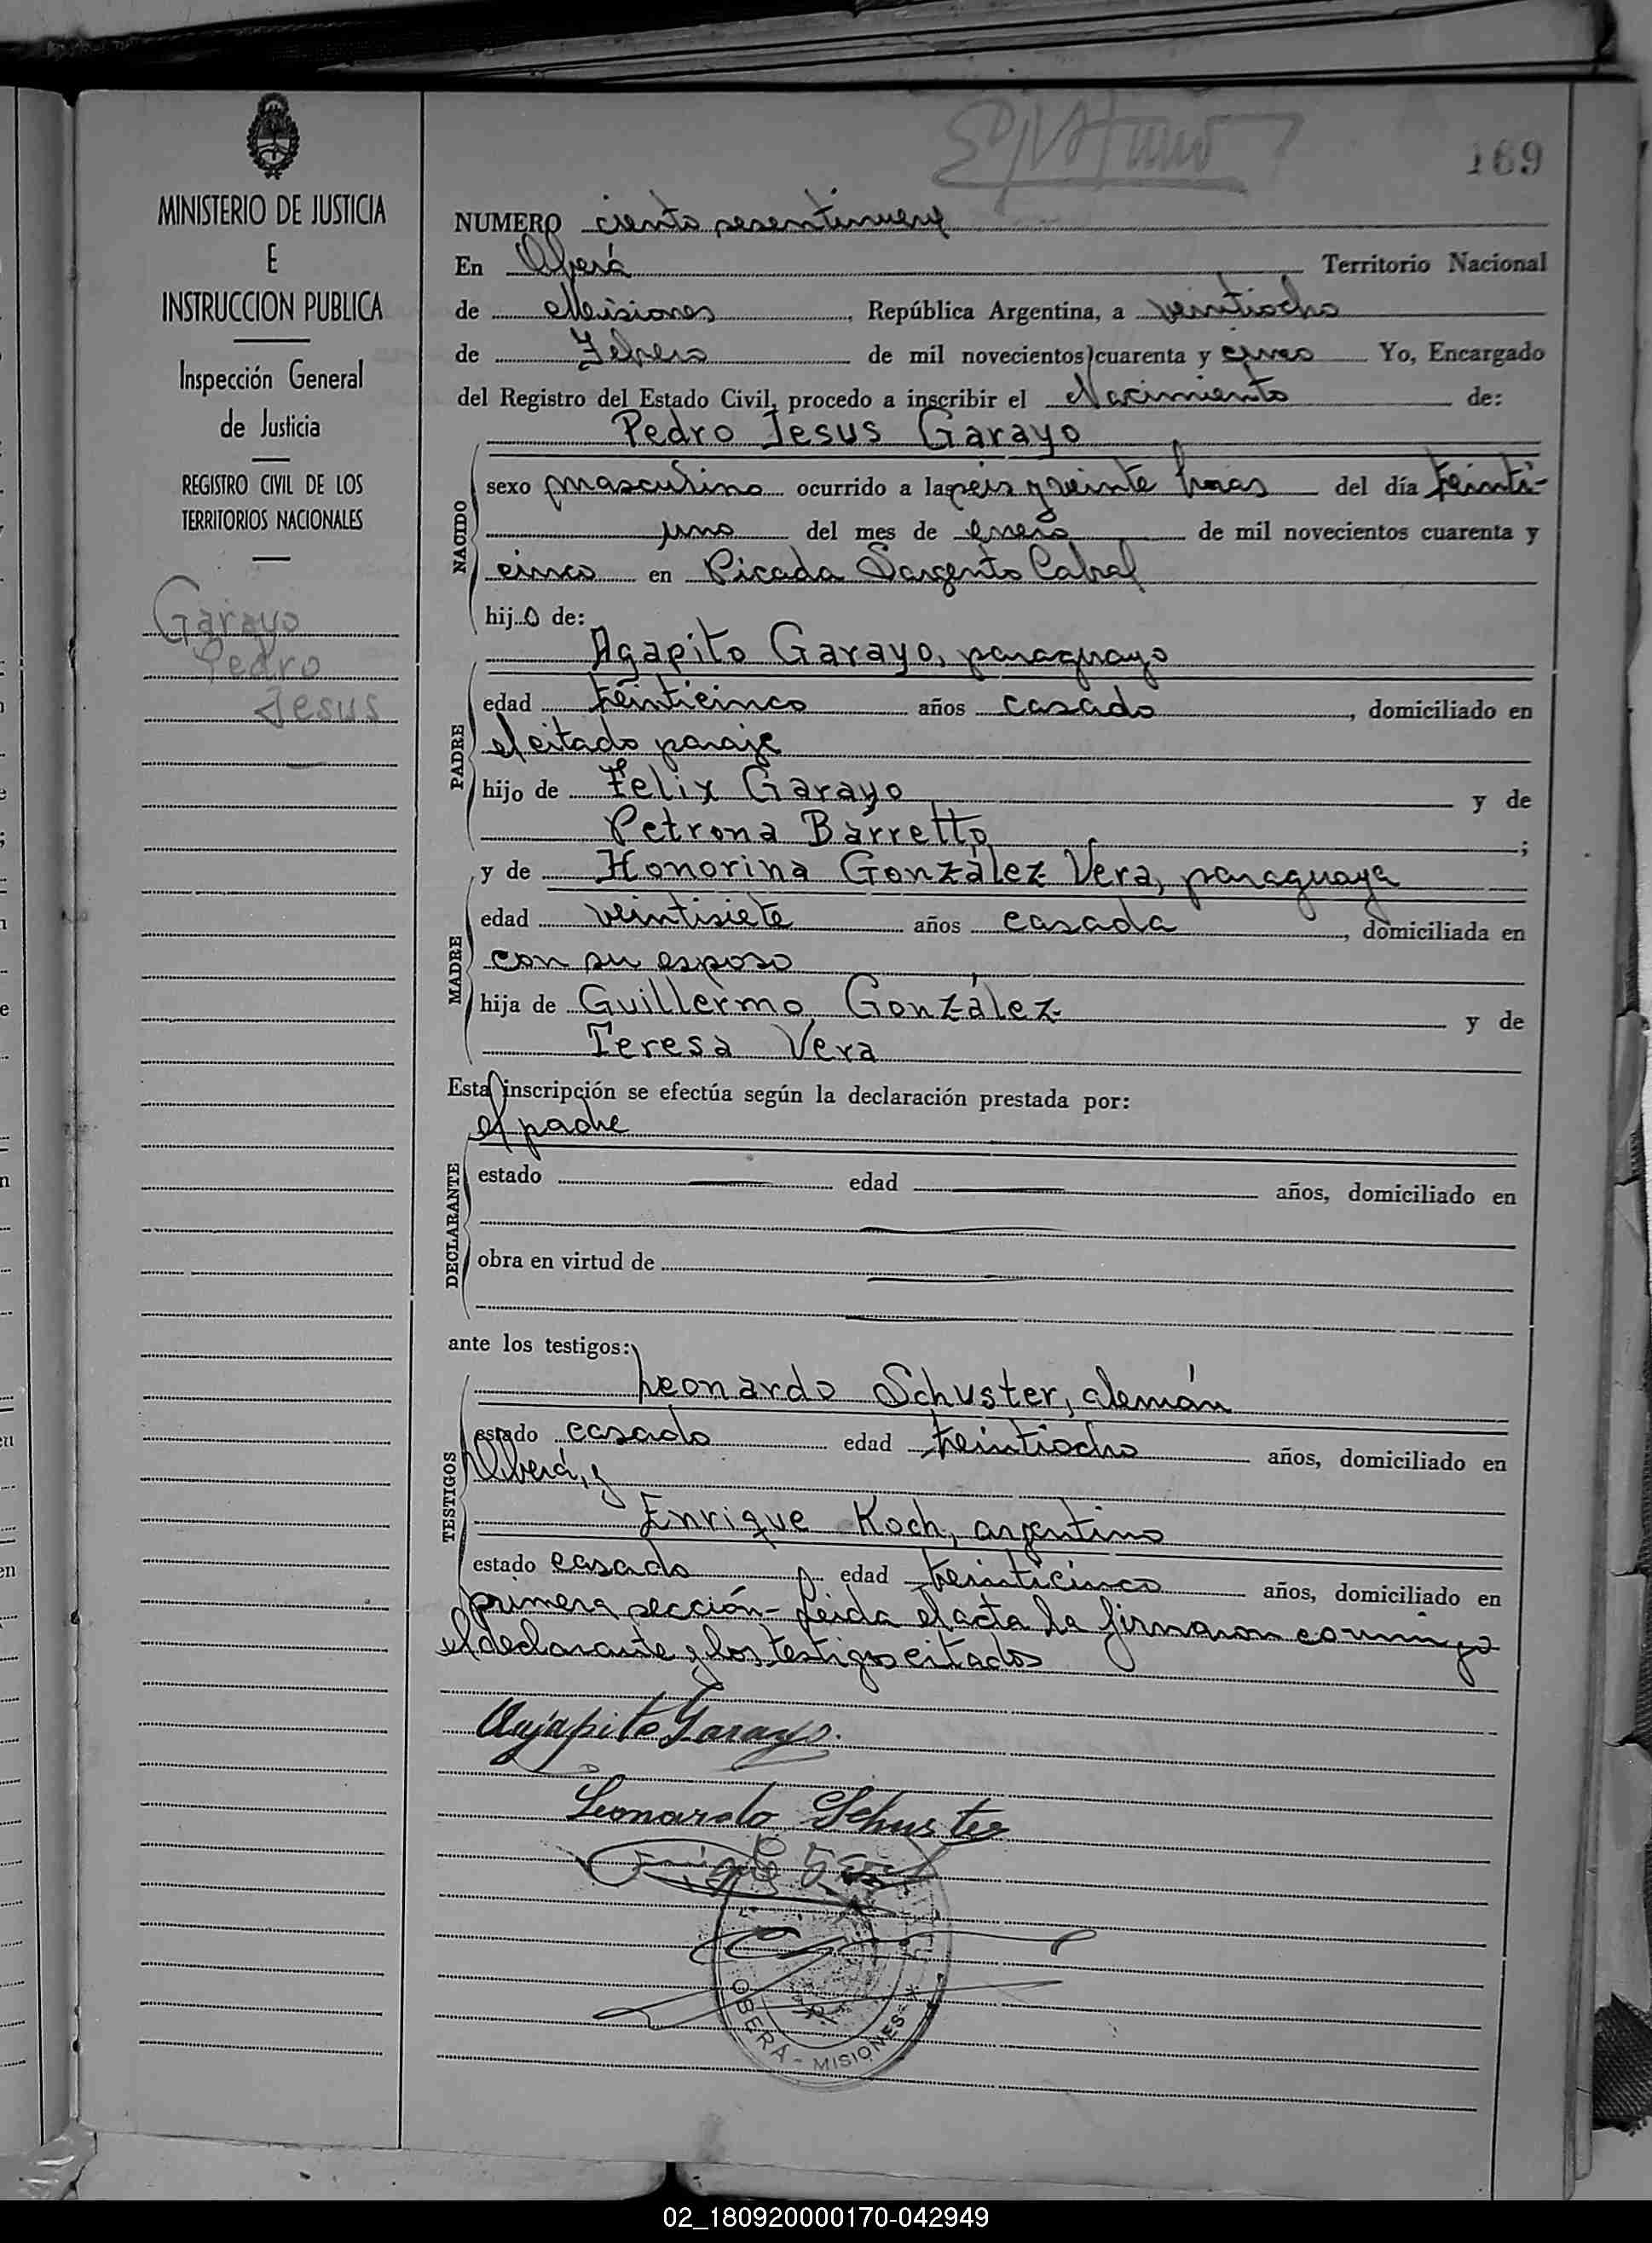 169
MINISTERIO DE JUSTICIA
E
INSTRUCCION PUBLICA
Inspección General
de Justicia
REGISTRO CIVIL DE LOS
TERRITORIOS NACIONALES
Garayo
Pedro
Jesus
NUMERO ciento sesentinueve
En Oberá Territorio Nacional
de Misiones, República Argentina, a veintiocho
de Febrero de mil novecientos cuarenta y cinco Yo, Encargado
del Registro del Estado Civil, procedo a inscribir el Nacimiento de:
Pedro Jesus Garayo
NACIDO
sexo masculino ocurrido a las seis y veinte horas del día treinti-
uno del mes de enero de mil novecientos cuarenta y
cinco en Picada Sargento Cabral
hijo de:
Agapito Garayo, paraguayo
PADRE
edad treinticinco años casado, domiciliado en
el citado paraje
hijo de Felix Garayo y de
Petrona Barretto;
y de Honorina González Vera, paraguaya
MADRE
edad veintisiete años casada, domiciliada en
con su esposo
hija de Guillermo González y de
Teresa Vera
Esta inscripción se efectúa según la declaración prestada por:
el padre
DECLARANTE
estado edad años, domiciliado en
obra en virtud de
ante los testigos:
Leonardo Schuster, alemán
TESTIGOS
estado casado edad treintiocho años, domiciliado en
Oberá, y
Enrique Koch, argentino
estado casado edad treinticinco años, domiciliado en
primera sección - Leida el acta la firmaron conmigo
el declarante y los testigos citados
Agapito Garayo.
Leonardo Schuster
OBERA - MISIONES
02_180920000170-042949